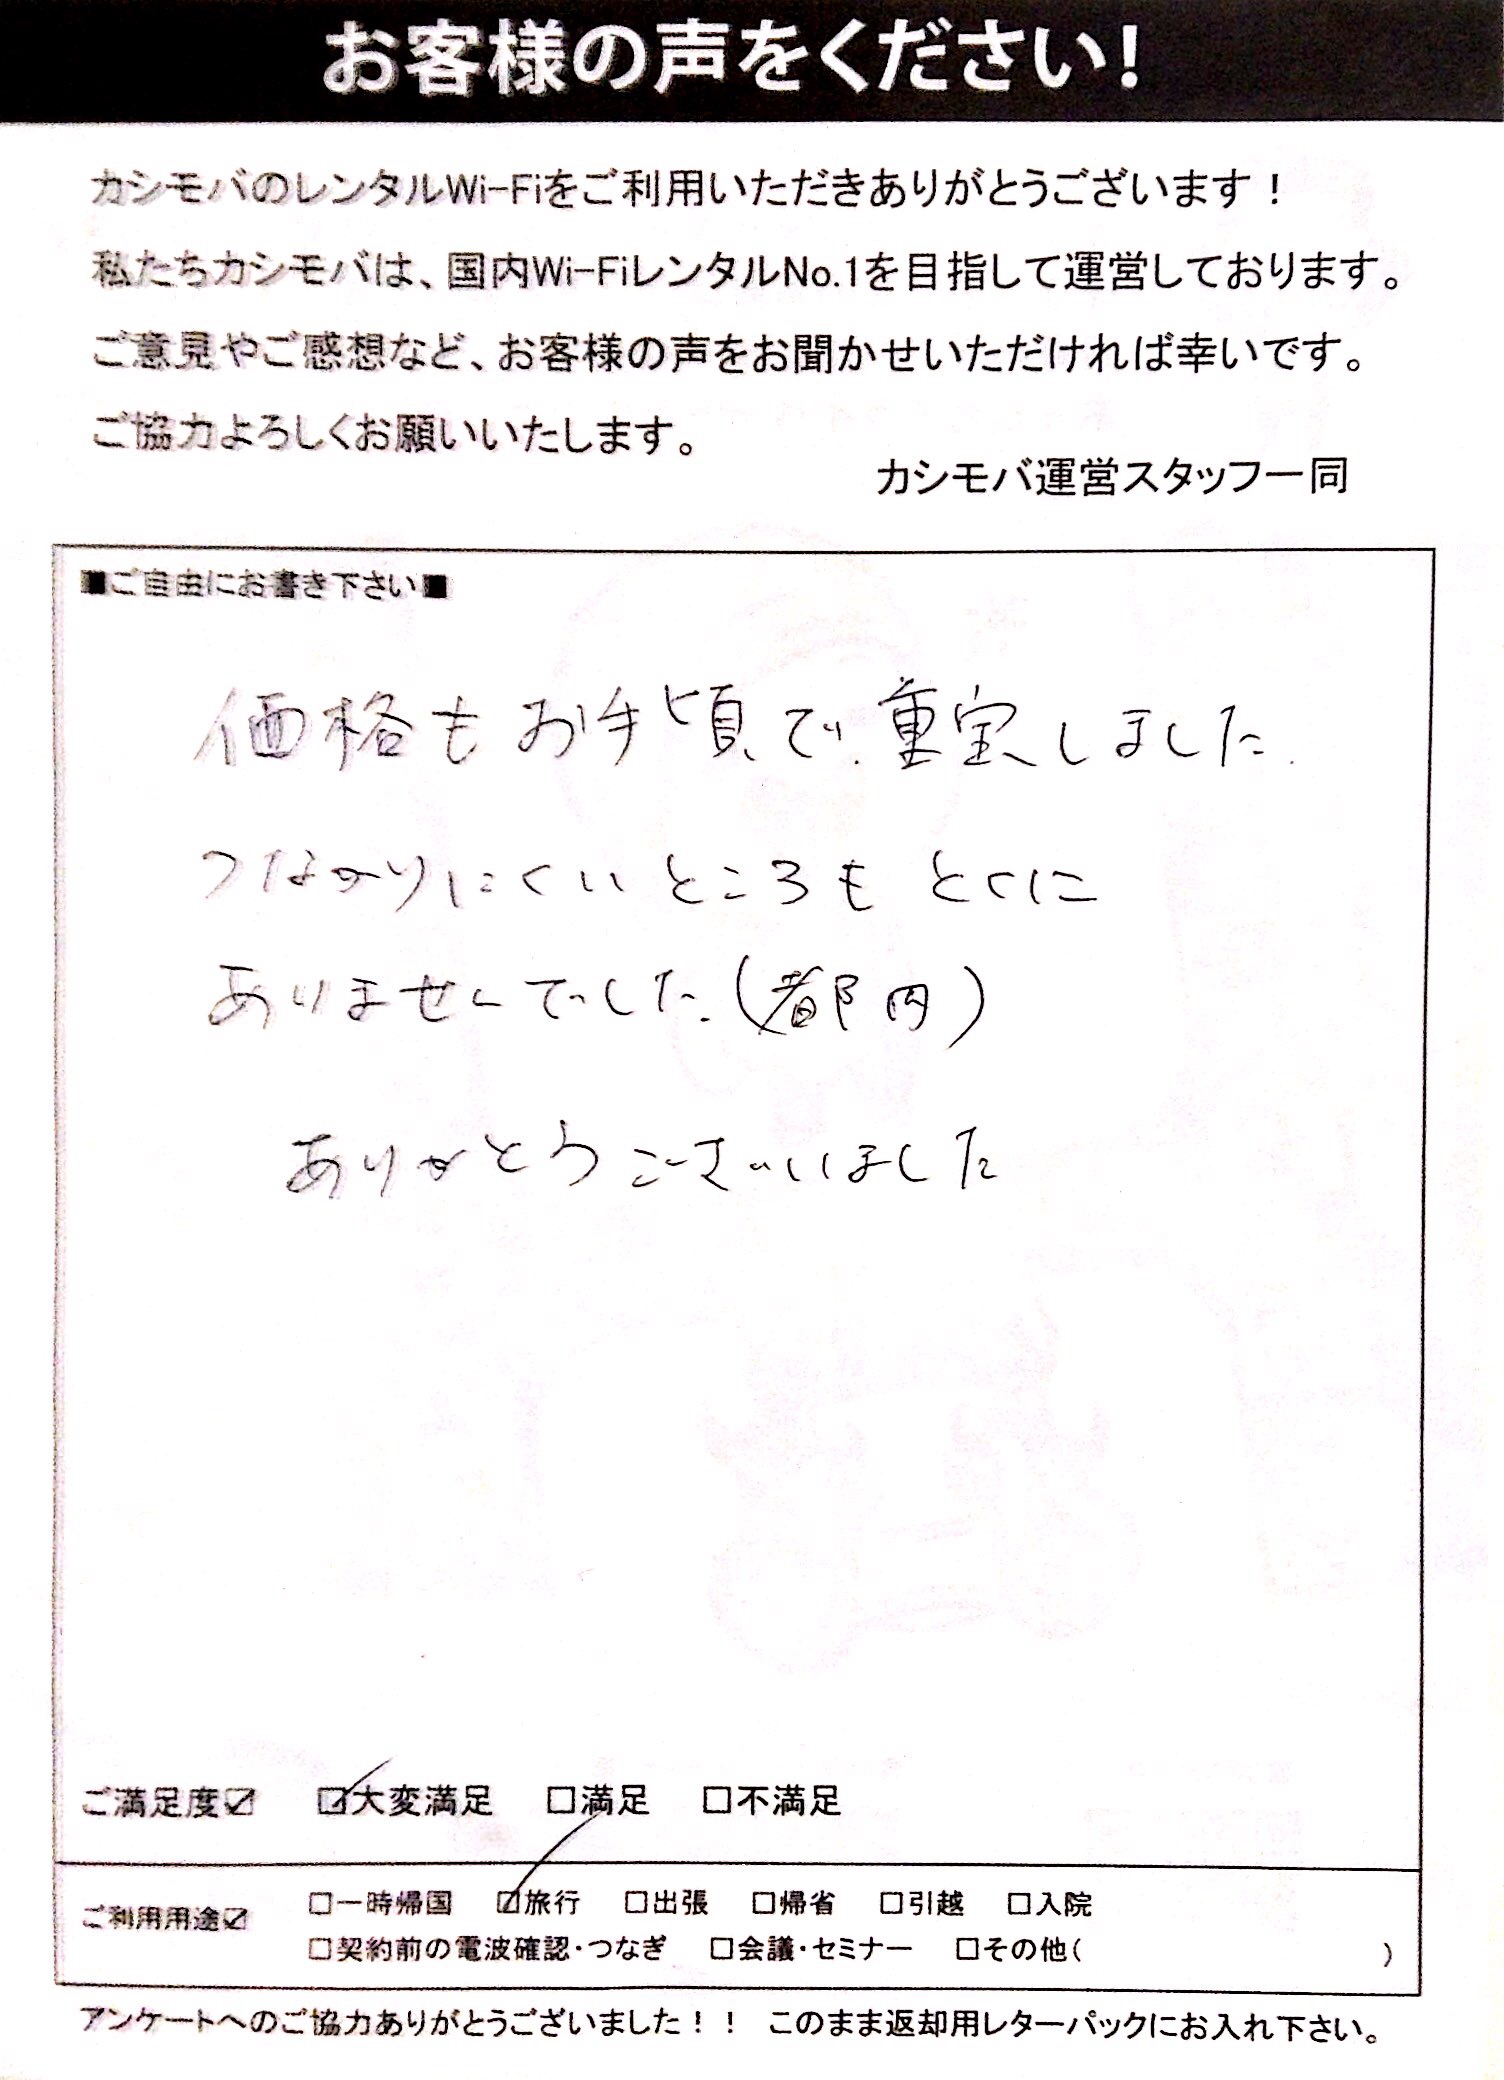 お客様の声をください!
カシモバのレンタルWi-Fiをご利用いただきありがとうございます！
私たちカシモバは、国内Wi-FiレンタルNo.1を目指して運営しております。
ご意見やご感想など、お客様の声をお聞かせいただければ幸いです。
ご協力よろしくお願いいたします。
カシモバ運営スタッフ一同
■ご自由にお書き下さい■
価格もお手頃で、重宝しました.
つながりにくいところもとくに
ありませんでした.(都内)
ありがとうございました
ご満足度☑ ☑大変満足 □満足 □不満足
ご利用用途☑ □一時帰国 ☑旅行 □出張 □帰省 □引越 □入院
□契約前の電波確認・つなぎ □会議・セミナー □その他( )
アンケートへのご協力ありがとうございました！！ このまま返却用レターパックにお入れ下さい。